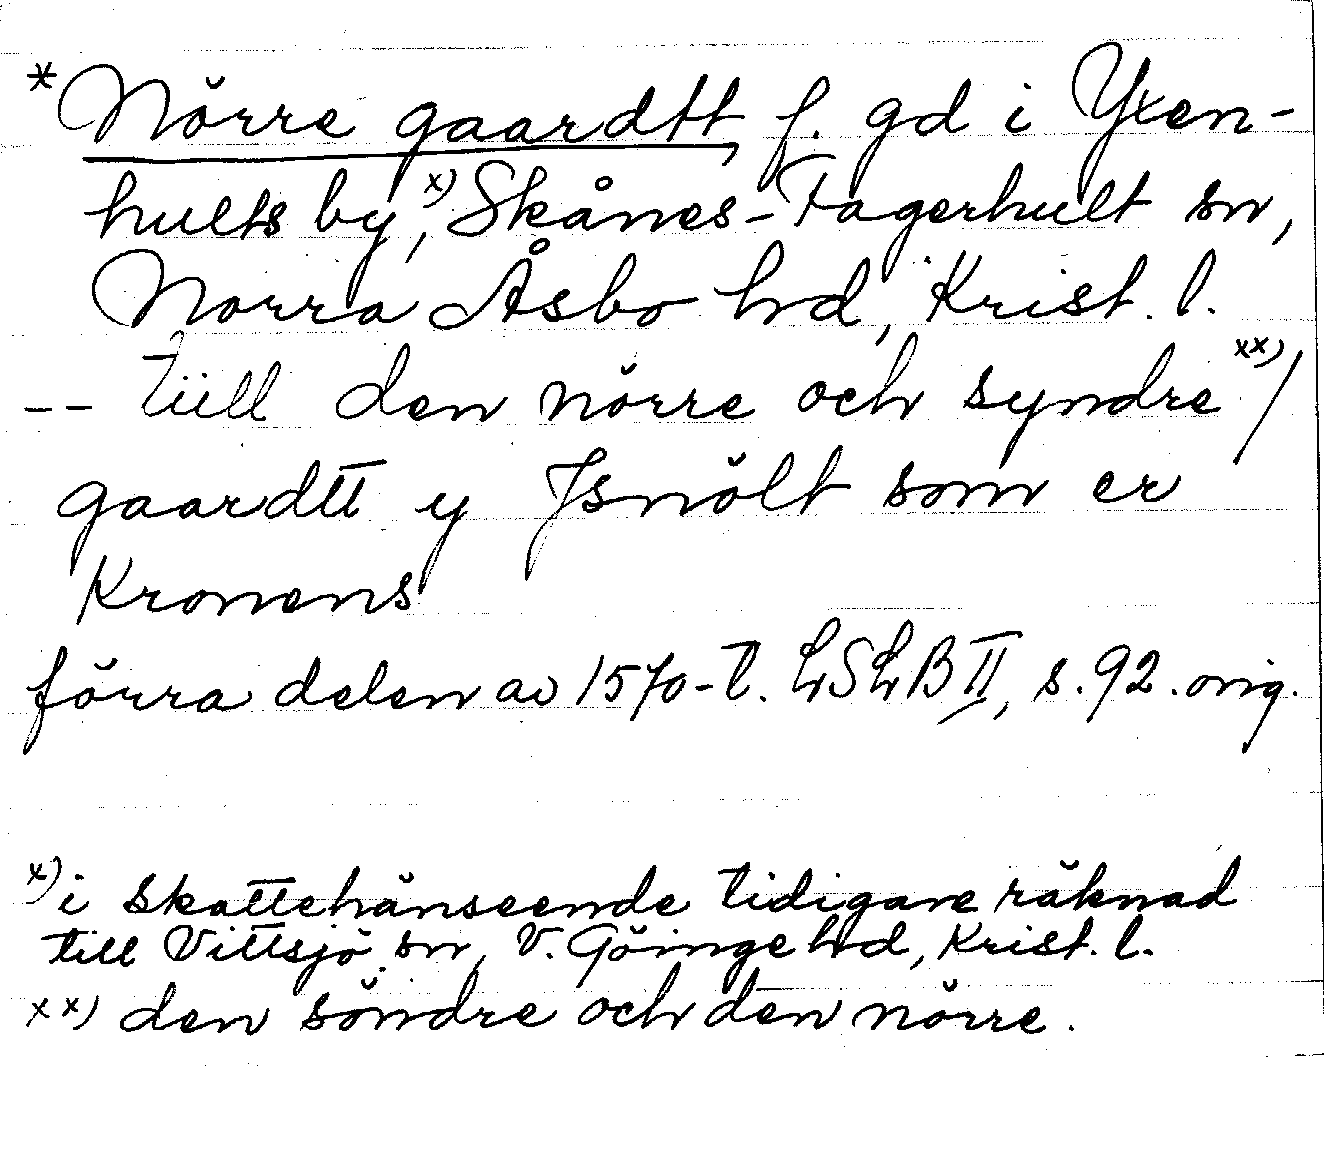 *Nörre gaardtt, f. gd i Yxen-
hults by,x) Skånes-Fagerhult sn,
Norra Åsbo hd, Krist. l.
-- tiill den nörre och syndre xx)/
gaardtt y Jsnölt som er
Kronens
förra delen av 1570-t. LSLB II, s. 92. orig.
x) i skattehänseende tidigare räknad
till Vittsjö sn, V. Göinge hd, Krist. l.
xx) den söndre och den nörre.